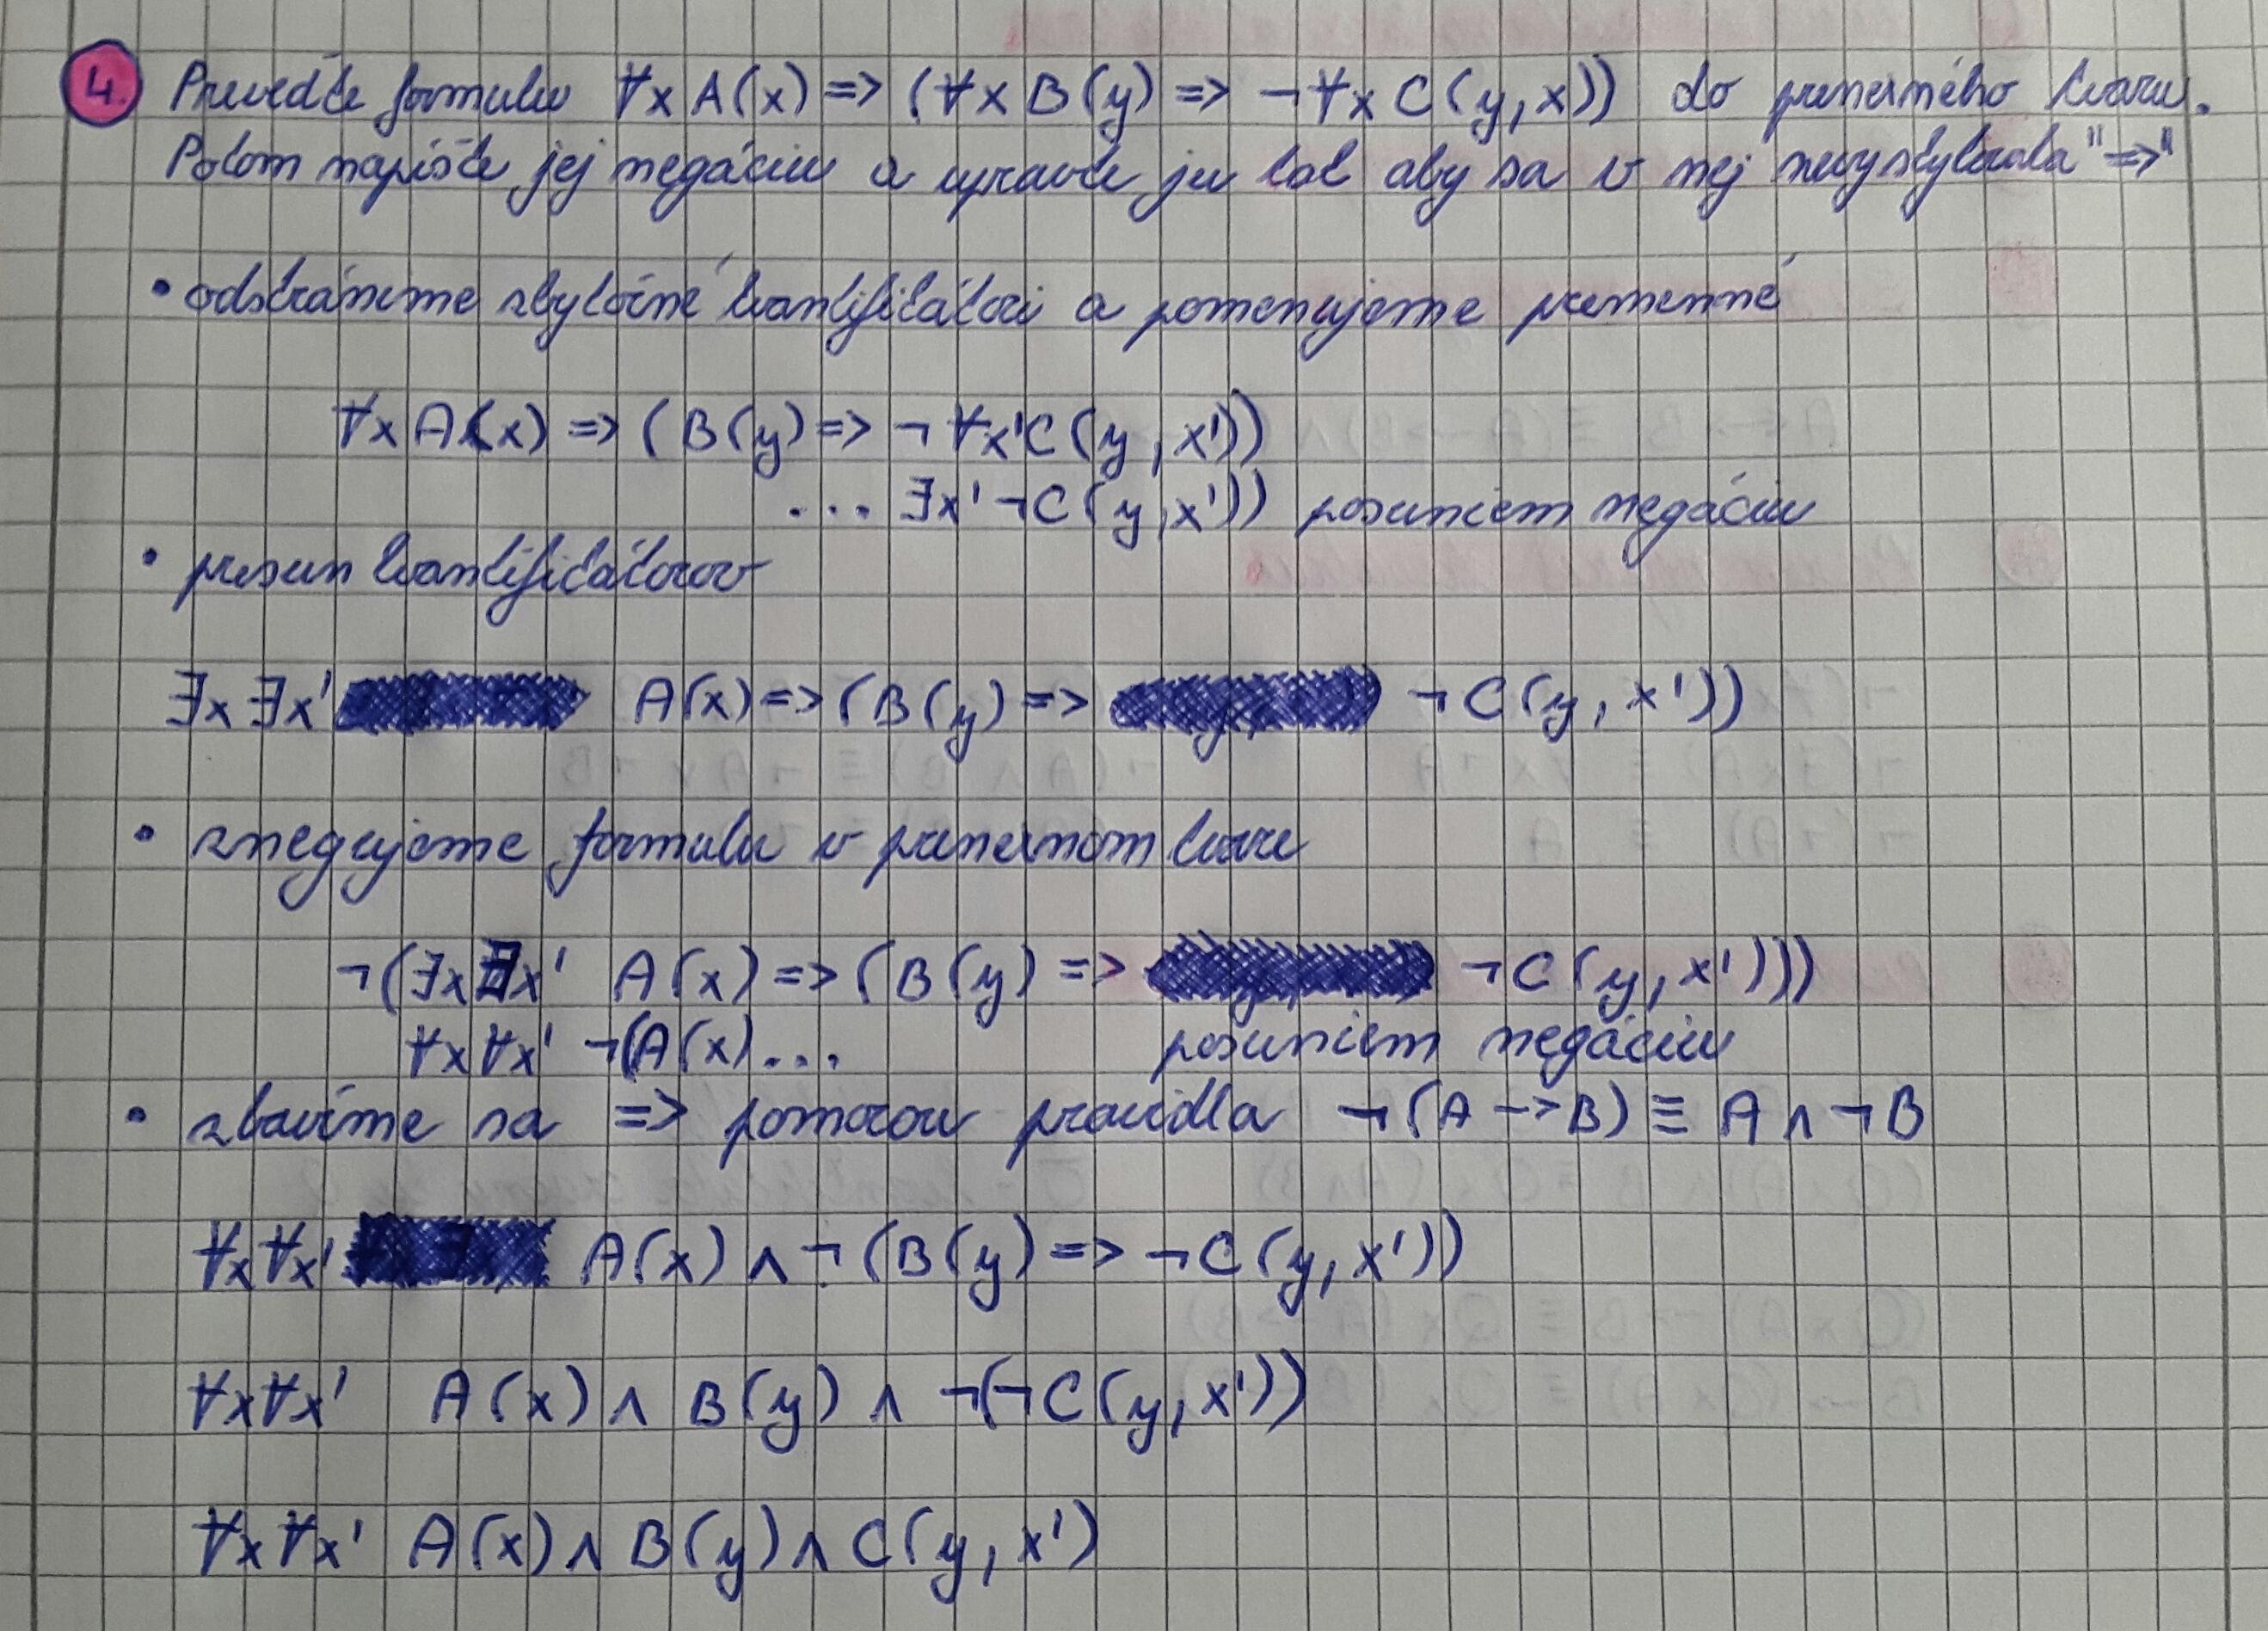 4. Preveďte formulu ∀x A(x) => (∀x B(y) => ¬∀x C(y,x)) do prenexného tvaru.
Potom napíšte jej negáciu a upravte ju tak aby sa v nej nevyskytovala "=>"
• odstránime zbytočné kvantifikátori a pomenujeme premenné
∀x A(x) => (B(y) => ¬∀x'C(y,x'))
... ∃x'¬C(y,x')) posuniem negáciu
• presun kvantifikátorov
∃x ∃x' A(x) => (B(y) => ¬C(y,x'))
• znegujeme formulu v prenexnom tvare
¬(∃x∃x' A(x) => (B(y) => ¬C(y,x')))
∀x∀x' ¬(A(x)... posuniem negáciu
• zbavíme sa => pomocou pravidla ¬(A -> B) ≡ A ∧ ¬B
∀x∀x' A(x) ∧ ¬(B(y) => ¬C(y,x'))
∀x∀x' A(x) ∧ B(y) ∧ ¬(¬C(y,x'))
∀x∀x' A(x) ∧ B(y) ∧ C(y,x')